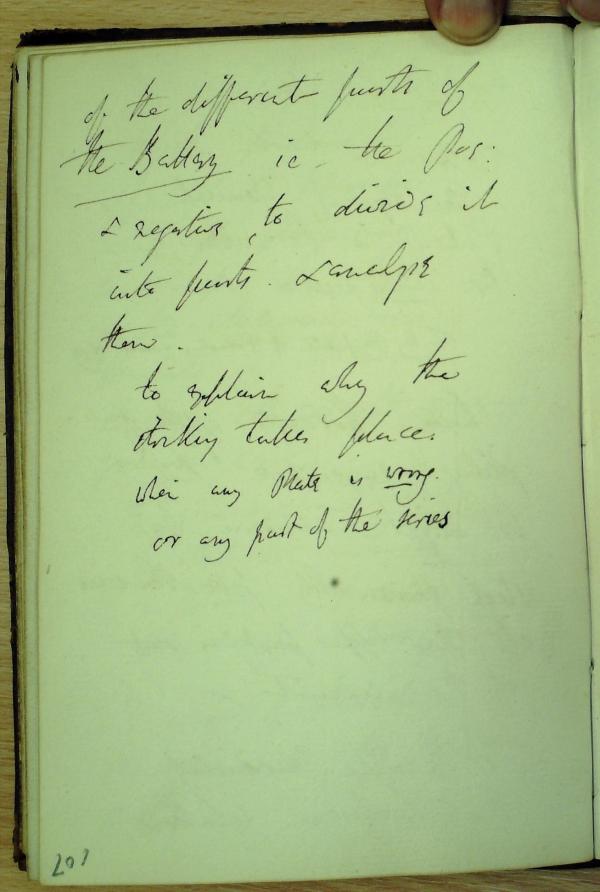 of the different parts of
the Battery ie - the Pos:
& negative, to divide it
into parts. & analyse
them.
to explain why the
striking takes place.
when any Plate is wrong.
or any part of the series
201